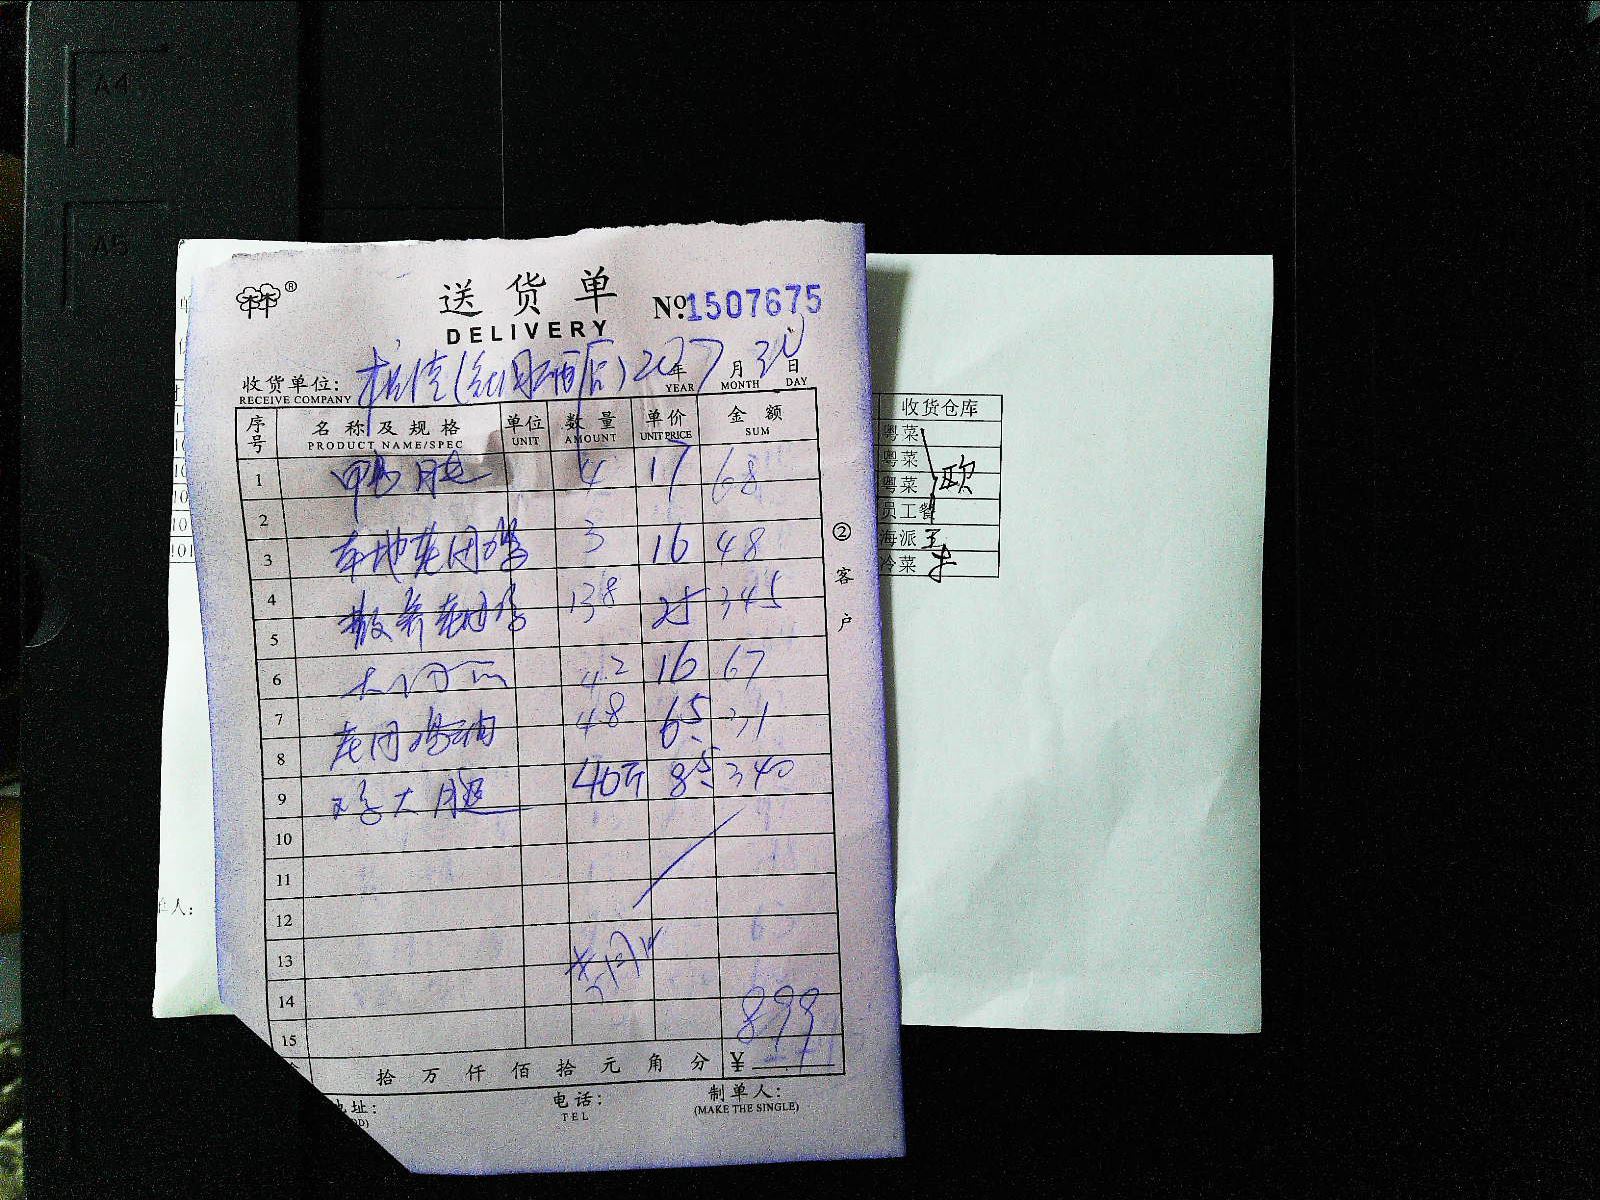 A4
A5
®
送货单
DELIVERY
№ 1507675
收货单位:
RECEIVE COMPANY
年 7 月 30 日
YEAR MONTH DAY
序号 名称及规格 单位 数量 单价 金额
PRODUCT NAME/SPEC UNIT AMOUNT UNIT PRICE SUM
1 鸭肫 4 17 68
2
3 本地老母鸡 3 16 48
4 散养老母鸡 138 25 345
5
6 4.2 16 67
7 老母鸡油 4.8 6.5 31
8
9 鸡大腿 40斤 8.5 340
10
11
12
13
14
15
899
拾万仟佰拾元角分 ¥
地址: 电话: 制单人:
TEL (MAKE THE SINGLE)
② 客户
收货仓库
粤菜
粤菜
粤菜 欧
员工餐
海派 王
冷菜
人: